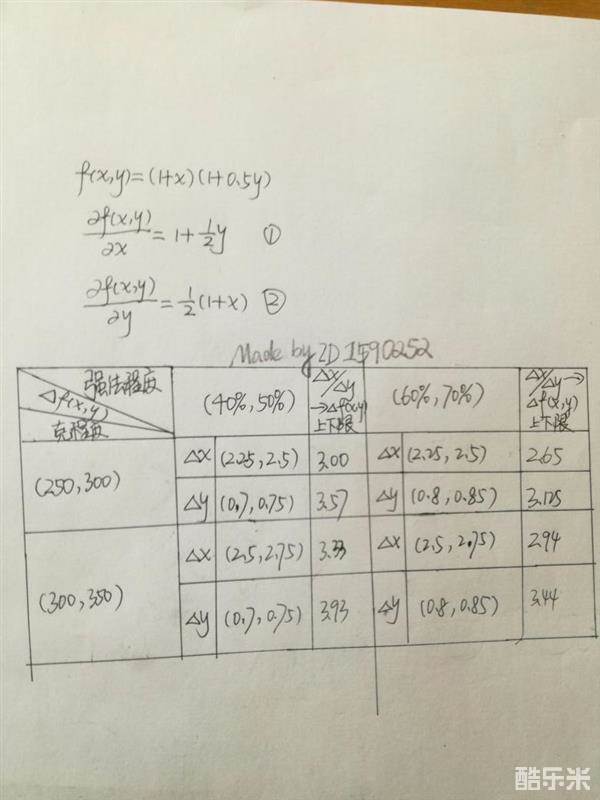 f(x,y)=(1+x)(1+0.5y)
∂f(x,y)/∂x=1+½y ①
∂f(x,y)/∂y=½(1+x) ②
Made by ID 1590252
强法程度 Δf(x,y) 克程度 (40%,50%) Δx/Δy→Δf(x,y)上下限 (60%,70%) Δx/Δy→Δf(x,y)上下限
(250,300) Δx (2.25,2.5) 3.00 Δx (2.25,2.5) 2.65
Δy (0.7,0.75) 3.57 Δy (0.8,0.85) 3.125
(300,350) Δx (2.5,2.75) 3.33 Δx (2.5,2.75) 2.94
Δy (0.7,0.75) 3.93 Δy (0.8,0.85) 3.44
酷乐米